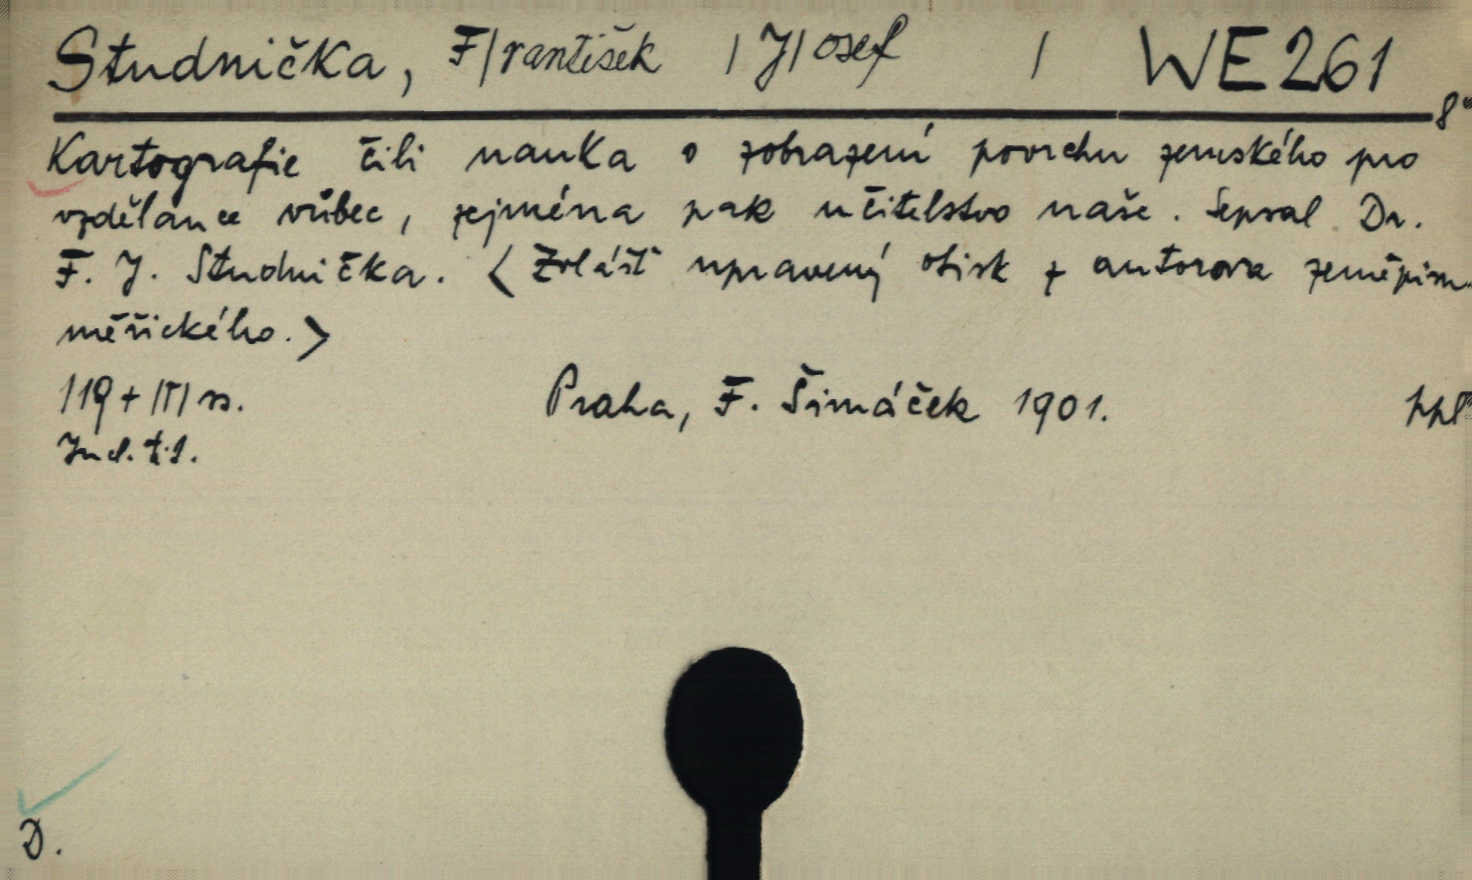 Studnička, F/rantišek / J/osef / WE 261
8°
Kartografie čili nauka o zobrazení povrchu zemského pro
vzdělance vůbec, zejména pak učitelstvo naše. Sepsal Dr.
F. J. Studnička. <Zvlášť upravený otisk z autorova zeměpisu
měřického.>
119 + /V/ ss. Praha, F. Šimáček 1901. ppl
D.